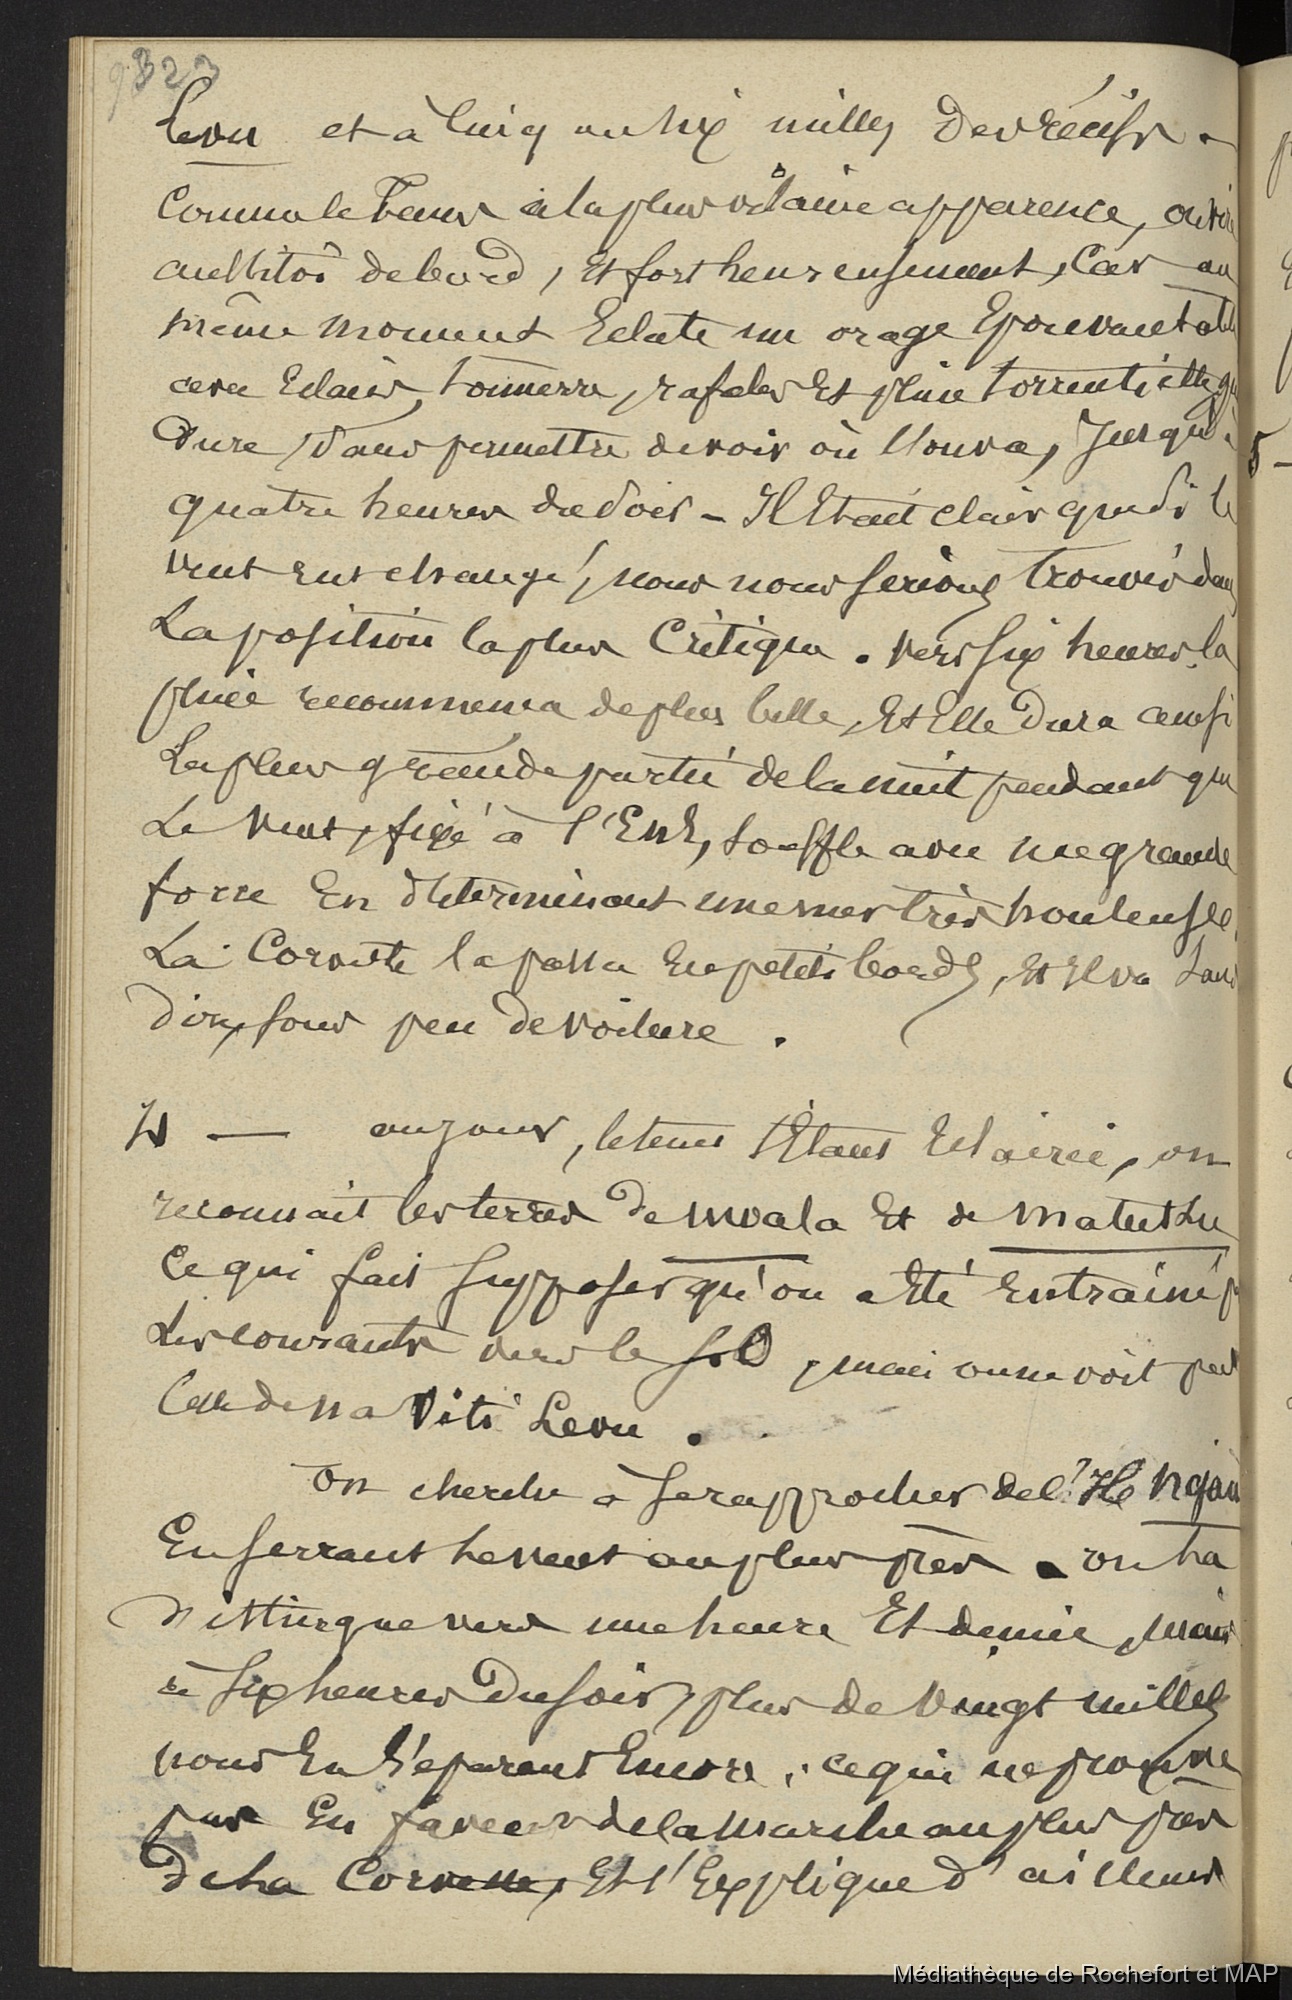 9323
Levu et à cinq ou six milles des récifs -
Comme le temps a la plus vilaine apparence, on vire
aussitôt de bord, et fort heureusement, car au
même moment éclate un orage épouvantable
avec éclairs, tonnerre, rafales et pluie torrentielle qui
dure, sans permettre de voir où l'on va, jusqu'à
quatre heures du soir - Il était clair que si le
vent eut changé, nous nous serions trouvés dans
la position la plus critique. Vers six heures la
pluie recommença de plus belle, et elle dura ainsi
la plus grande partie de la nuit pendant que
le vent, fixé à l'ENE, souffle avec une grande
force en déterminant une mer très houleuse.
La Corvette la passa en petits bords, et il va sans
dire, sous peu de voilure.
4 — au jour, le temps s'étant éclairci, on
reconnait les terres de Moala et de Matuthu
ce qui fait supposer qu'on a été entraîné
les courants vers le SO, mais on ne voit pas
celle de na Viti Levu.
on cherche à se rapprocher de l'île Ngau
en serrant le vent au plus près. on la
distingue vers une heure et demie, mais
à six heures du soir, plus de vingt milles
nous en séparent encore, ce qui ne prouve
pas en faveur de la marche au plus près
de la Corvette, et s'explique d'ailleurs
5 -
Médiathèque de Rochefort et MAP